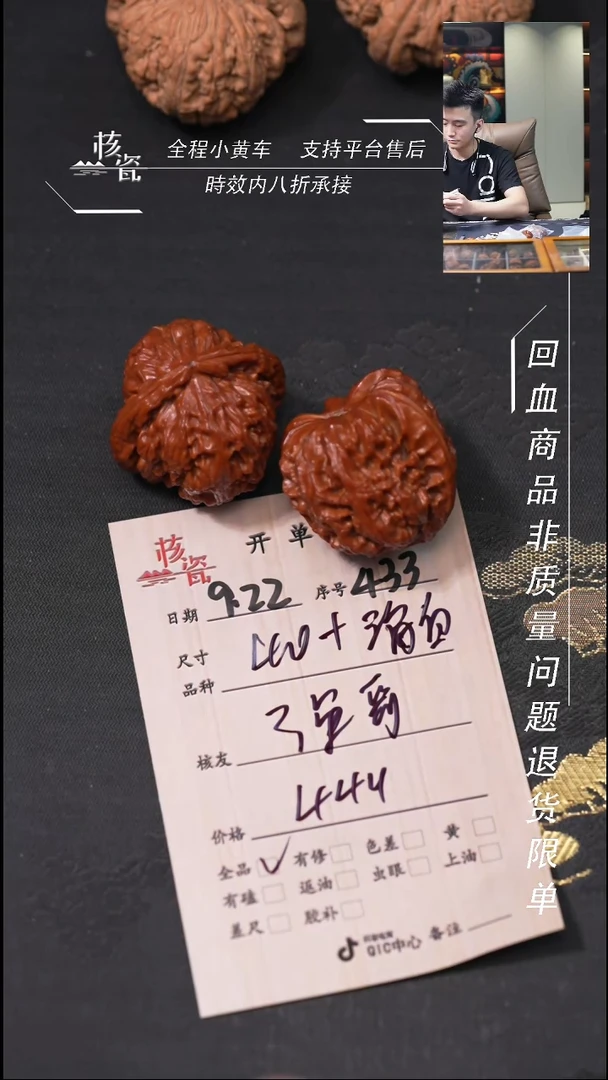 核瓷
全程小黄车 支持平台售后
時效内八折承接
回血商品非质量问题退货限单
核瓷
开单
日期 9.22 序号 433
尺寸 40+
品种
核友
价格 444
全品 ✓ 有修 色差 黄
有磕 返油 虫眼 上油
差尺 胶补
QIC中心 备注